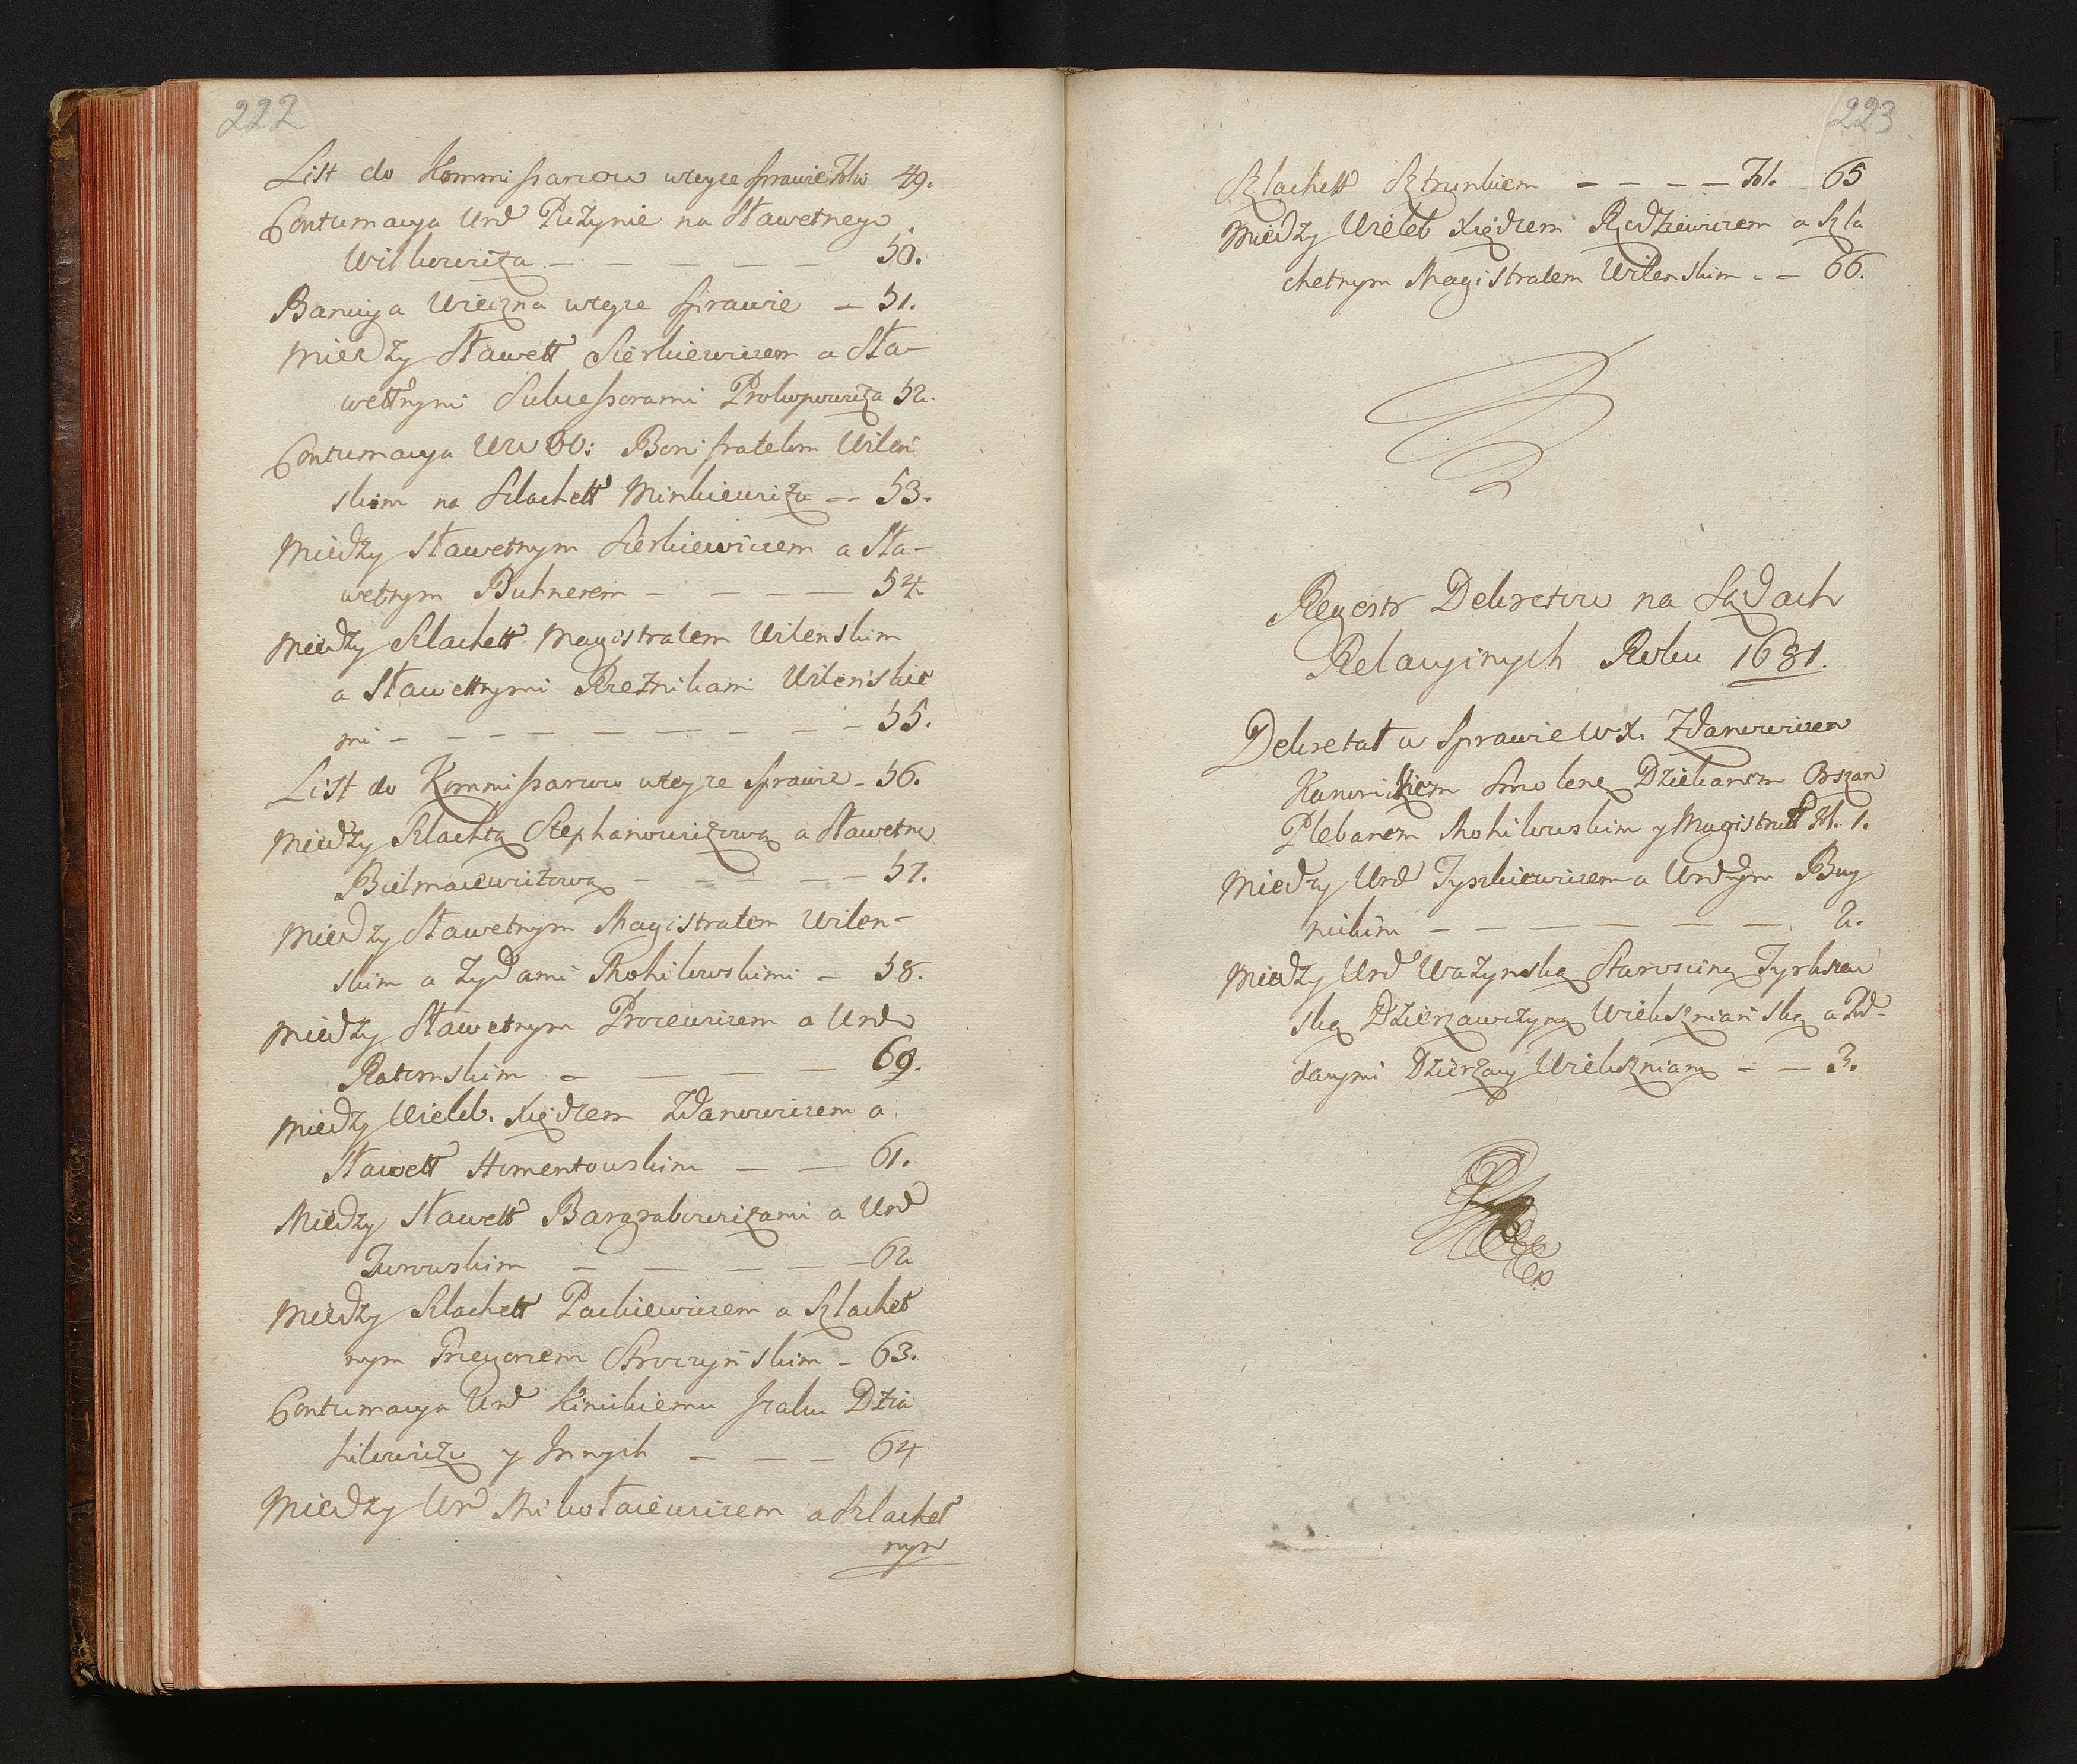 222
List do Kommissarzow wteyze sprawie Folio 49.
Contumacya Urd Puzynie na Sławetnego
Wilkowicza - - - - - 50.
Banicya Wieczna wteyze sprawie - 51.
Miedzy Sławett Sierkiewiczem a Sła-
wettnymi Sukcessorami Prokopowicza 52.
Contumacya WW OO: Bonifratelom Wilen
skim na Szlachett Minkiewicza - - 53.
Miedzy Sławetnym Sierkiewiczem a Sła-
wetnym Buhnerem - - - - 54.
Miedzy Szlachett Magistratem Wilenskim
a Sławettnymi Rzeznikami Wilenskie
mi - - - - - - - - - 55.
List do Kommissarzow wteyze sprawie - 56.
Miedzy Szlachtą Stephanowiczową a Sławetną
Bielmacewiczową - - - - - 57.
Miedzy Sławetnym Magistratem Wilen-
skim a Zydami Mohilowskimi - 58.
Miedzy Sławetnym Procewiczem a Urd
Ratomskim - - - - 60.
Miedzy Wieleb. Xiędzem Zdanowiczem a
Sławett Homentowskim - - 61.
Miedzy Sławett Barązabowiczami a Urd
Zurowskim - - - - - 62
Miedzy Szlachett Packiewiczem a Szlachet
nym Grzegorzem Stroczyńskim - 63.
Contumacya Urd Kinickiemu Jzaku Dzia
kilowiczu y Innych - - - 64
Miedzy Ur Mikołaiewiczem a Szlachet
nym
223
Szlachett Sztrunkiem - - - - Fol. 65
Miedzy Wieleb Xiędzem Rodziewiczem a Szla
chetnym Magistratem Wilenskim - - 66.
Regestr Dekretow na Sądach
Relacyinych Roku 1681.
Dekretat w Sprawie WX. Zdanowiczem
Kanonikiem Smolenz Dziekanem Orszan
Plebanem Mohilowskim y Magistratt Fol. 1.
Miedzy Urd Tyszkiewiczem a Urdzym Buy
nickim - - - - - - - 2.
Miedzy Urd Wazynską Starosciną Tyrksze
ską Dzierzawczyną Wiekszniańską a Pod-
danymi Dzierzawy Wiekszniany - - 3.